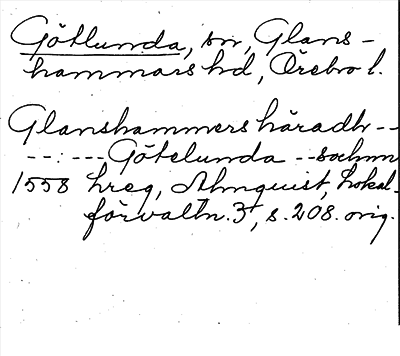 Götlunda, sn, Glans-
hammars hd, Örebro l.
Glanshammers häradh --
--:--- Götelunda -- sochnn
1558 hreg, Almquist, Lokal-
förvaltn. 3, s. 208. orig.